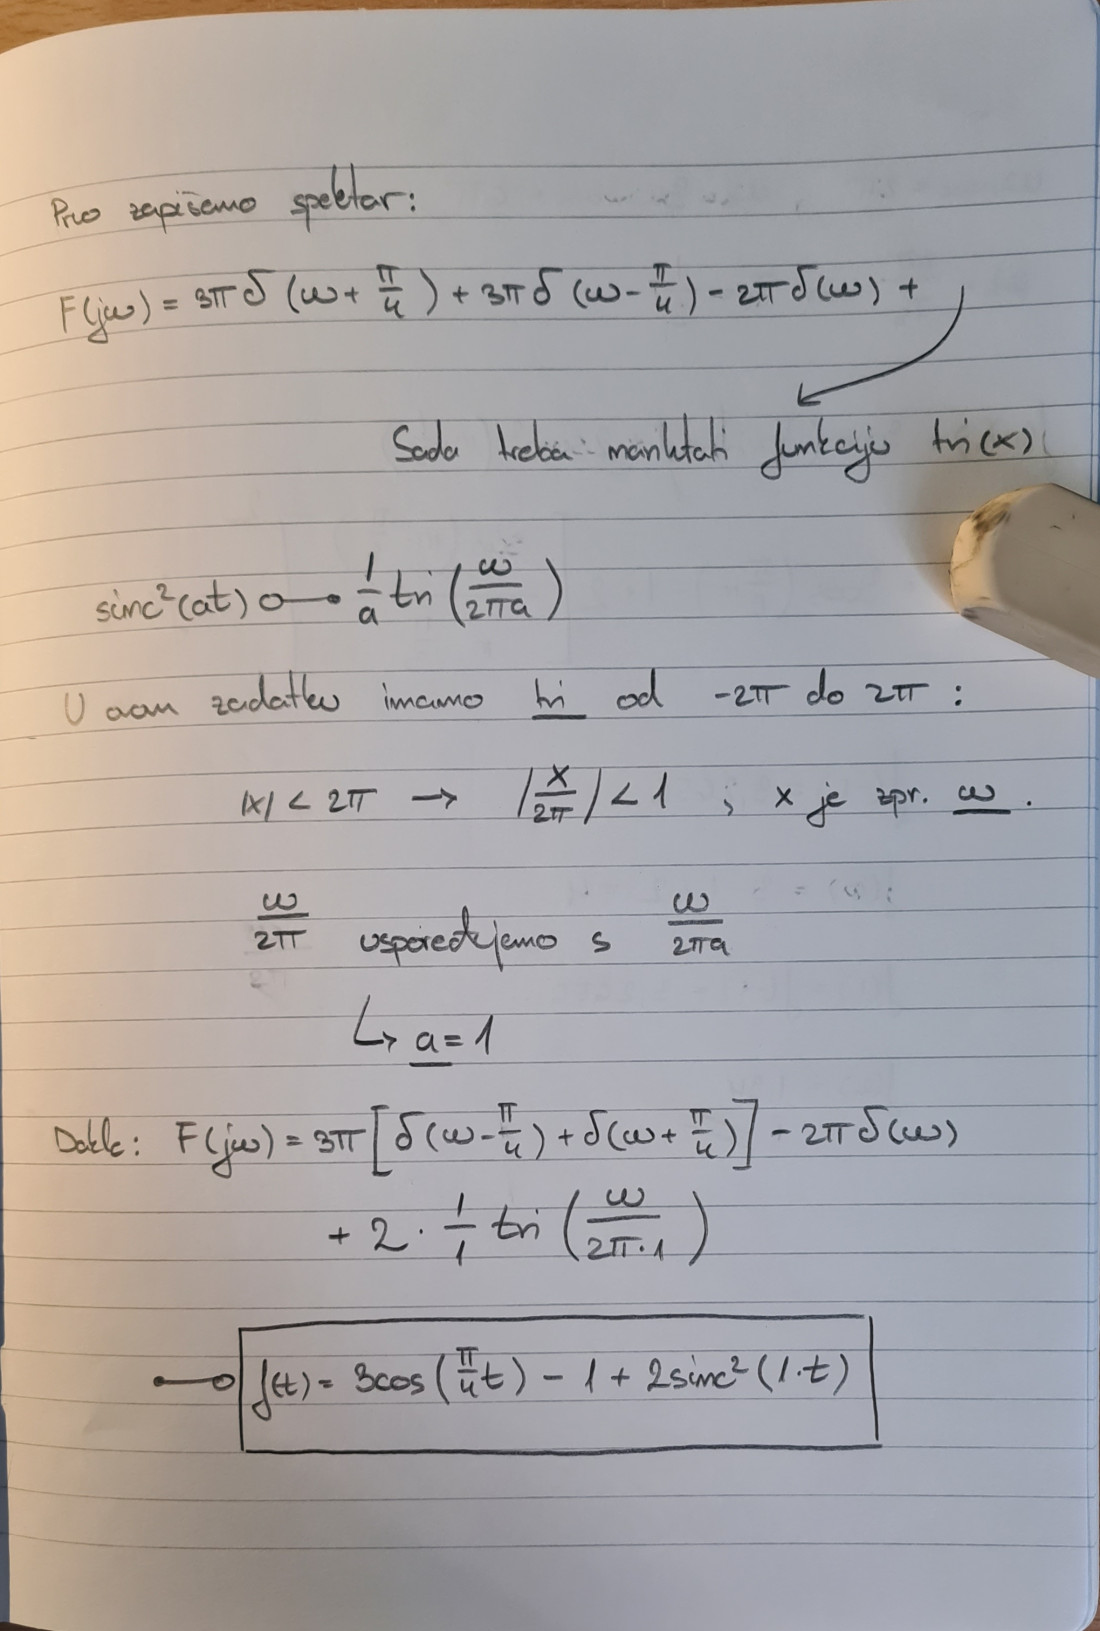 Prvo zapišemo spektar:
F(jω) = 3π δ (ω + π/4) + 3π δ (ω - π/4) - 2π δ(ω) +
Sada treba namjestati funkciju tri(x)
sinc²(at) ○—• 1/a tri (ω/2πa)
U ovom zadatku imamo tri od -2π do 2π :
|x| < 2π → |x/2π| < 1 ; x je zpr. ω .
ω/2π uspoređujemo s ω/2πa
↳ a = 1
Dakle: F(jω) = 3π [δ(ω - π/4) + δ(ω + π/4)] - 2π δ(ω)
+ 2 · 1/1 tri (ω/2π·1)
•—○ f(t) = 3cos(π/4 t) - 1 + 2sinc² (1·t)